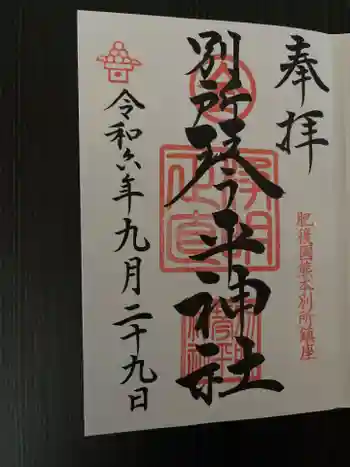 奉拝
肥後國熊本別所鎮座
別所琴平神社
令和六年九月二十九日